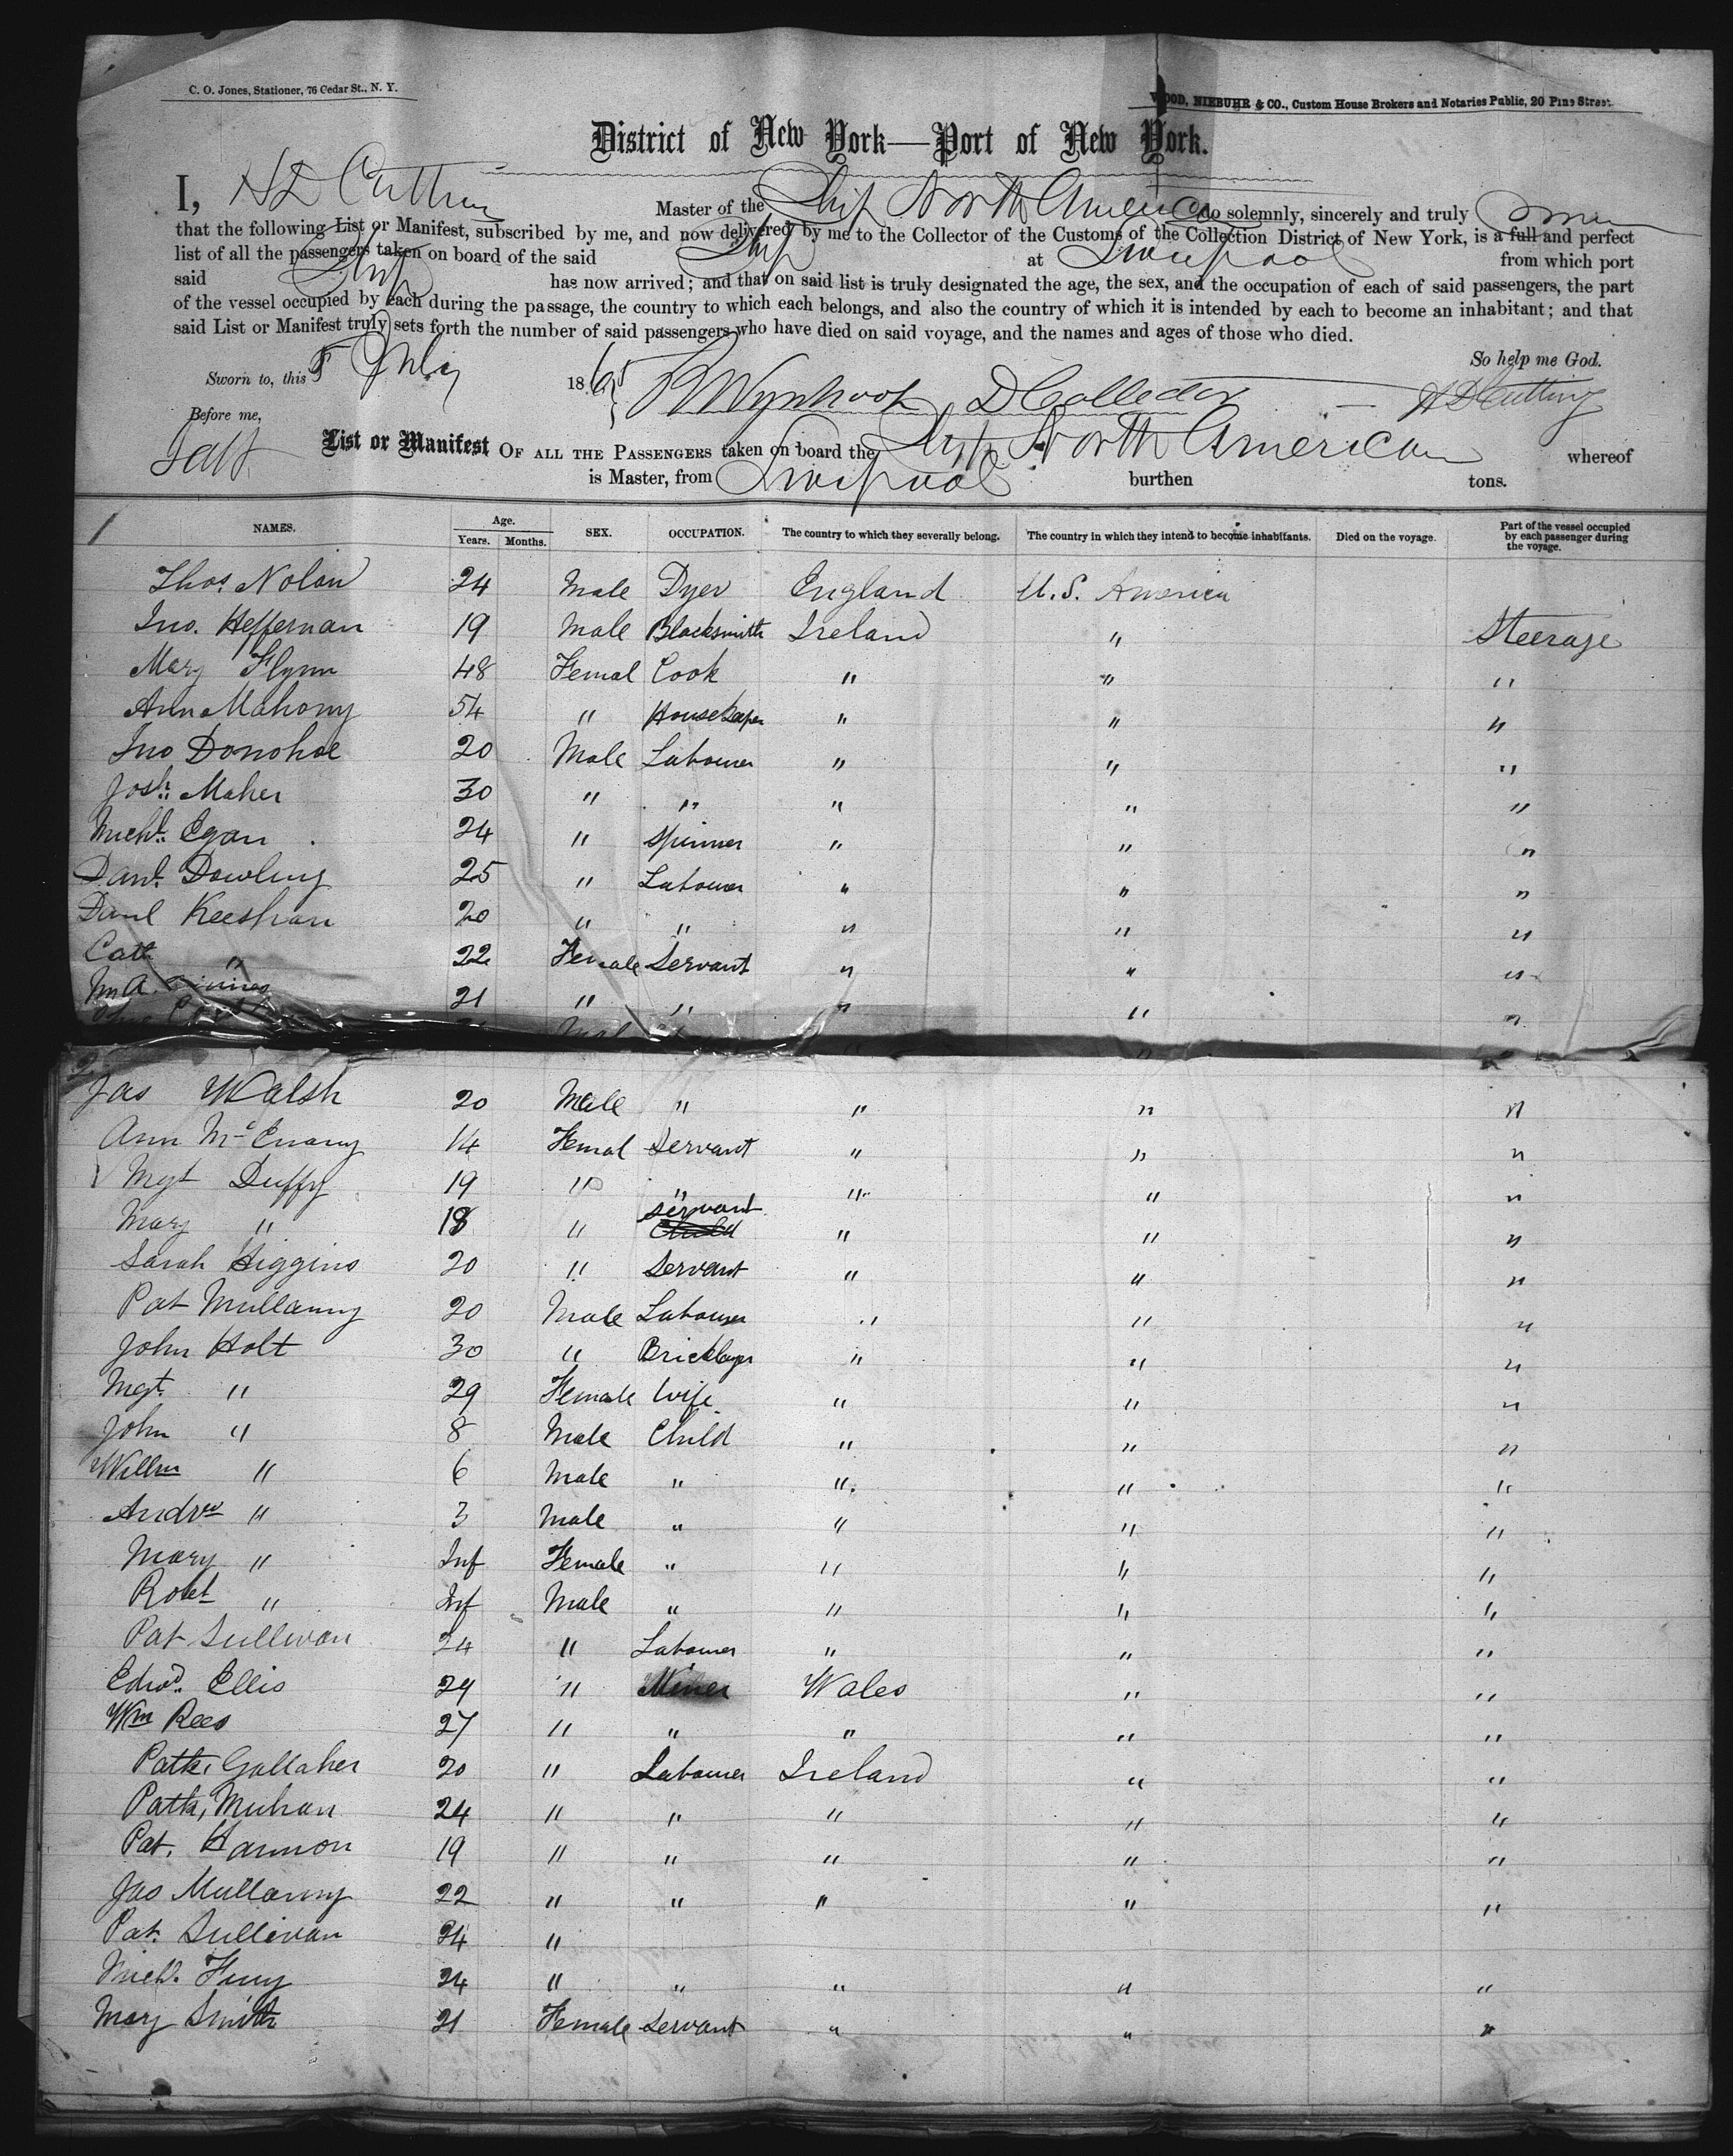 C. O. Jones, Stationer, 76 Cedar St., N. Y.
WOOD, NIEBUHR & CO., Custom House Brokers and Notaries Public, 20 Pine Street.
District of New York—Port of New York.
I, H D Cutting Master of the Ship North America do solemnly, sincerely and truly swear
that the following List or Manifest, subscribed by me, and now delivered by me to the Collector of the Customs of the Collection District of New York, is a full and perfect
list of all the passengers taken on board of the said Ship at Liverpool from which port
said Ship has now arrived; and that on said list is truly designated the age, the sex, and the occupation of each of said passengers, the part
of the vessel occupied by each during the passage, the country to which each belongs, and also the country of which it is intended by each to become an inhabitant; and that
said List or Manifest truly sets forth the number of said passengers who have died on said voyage, and the names and ages of those who died.
So help me God.
Sworn to, this 5 July 1865 D Collector H D Cutting
Before me,
List or Manifest OF ALL THE PASSENGERS taken on board the Ship North America whereof
is Master, from Liverpool burthen tons.
1
NAMES. Age. Years. Months. SEX. OCCUPATION. The country to which they severally belong. The country in which they intend to become inhabitants. Died on the voyage. Part of the vessel occupied by each passenger during the voyage.
Thos. Nolan 24 Male Dyer England U.S. America
Jno. Heffernan 19 Male Blacksmith Ireland " Steerage
Mary Flynn 48 Femal Cook " " "
Ann Mahony 54 " Housekeeper " " "
Jno Donohoe 20 Male Labourer " " "
Josh. Maher 30 " " " " "
Michl. Egan 24 " Spinner " " "
Danl. Dowling 25 " Labourer " " "
Danl Keeshan 20 " " " " "
Cath " 22 Female Servant " " "
M A 21 " " " " "
Male " " "
2
Jas Walsh 20 Male " " " "
Ann McEnany 14 Femal Servant " " "
Mgt Duffy 19 " " " " "
Mary " 18 " servant Child " " "
Sarah Higgins 20 " Servant " " "
Pat Mullanny 20 Male Labourer " " "
John Holt 30 " Bricklayer " " "
Mgt. " 29 Female Wife " " "
John " 8 Male Child " " "
Willm " 6 Male " " " "
Andrw " 3 Male " " " "
Mary " Inf Female " " " "
Robt " Inf Male " " " "
Pat Sullivan 24 " Labourer " " "
Edwd. Ellis 29 " Miner Wales " "
Wm Rees 27 " " " " "
Patk. Gallaher 20 " Labourer Ireland " "
Patk. Mehan 24 " " " " "
Pat. Hannon 19 " " " " "
Jas Mullanny 22 " " " " "
Pat. Sullivan 24 "
Michl. 24 " " " " "
Mary Smith 21 Female Servant " " "